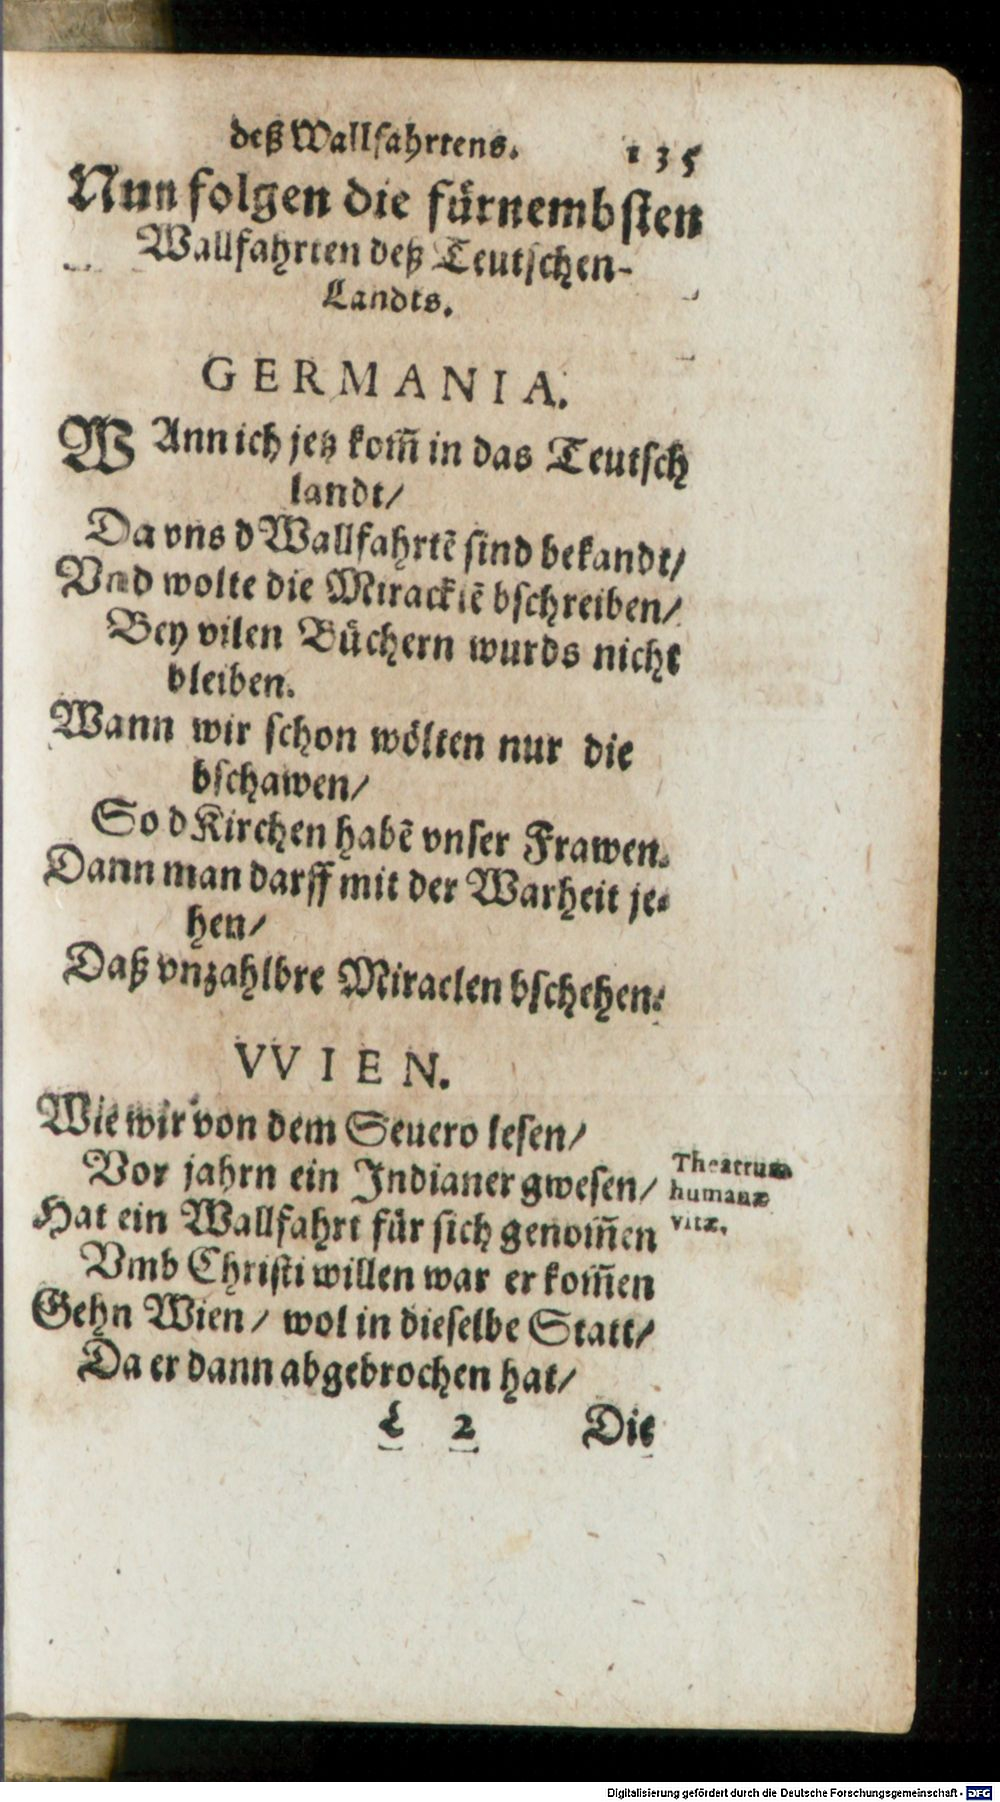 deß Wallfahrtens. 135
Nun folgen die fürnembsten
Wallfahrten deß Teutschen-
Landts.
GERMANIA.
WAnn ich jetz kom̃ in das Teutsch
landt/
Da vns d Wallfahrtẽ sind bekandt/
Vnd wolte die Miracklẽ bschreiben/
Bey vilen Büchern wurds nicht
bleiben.
Wann wir schon wölten nur die
bschawen/
So d Kirchen habẽ vnser Frawen.
Dann man darff mit der Warheit je-
hen/
Daß vnzahlbre Miraclen bschehen.
VVIEN.
Wie wir von dem Seuero lesen/
Vor jahrn ein Indianer gwesen/
Hat ein Wallfahrt für sich genom̃en
Vmb Christi willen war er kom̃en
Gehn Wien/ wol in dieselbe Statt/
Da er dann abgebrochen hat/
Theatrum
humanæ
vitæ.
L 2 Die
Digitalisierung gefördert durch die Deutsche Forschungsgemeinschaft - DFG